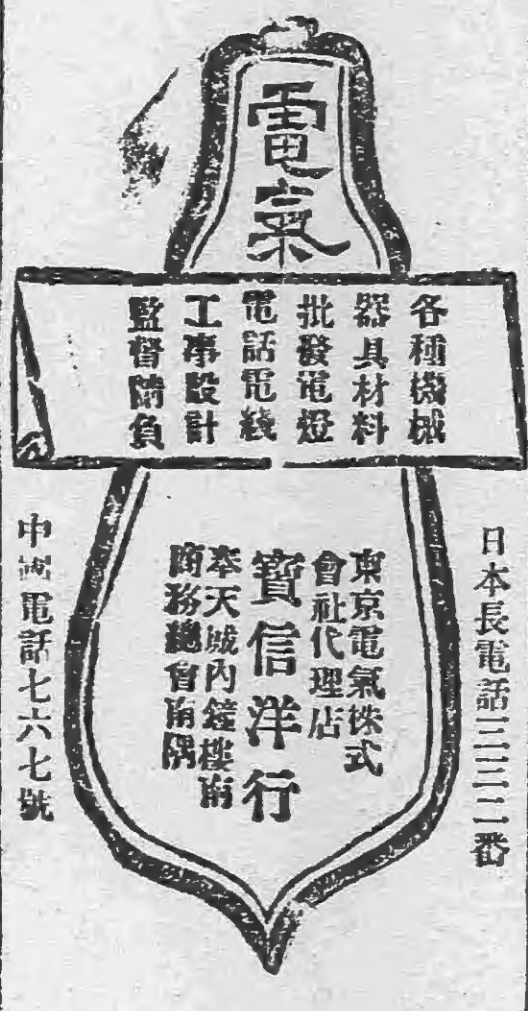 電氣
各種機械
器具材料
批發電燈
電話電綫
工事設計
監督請負
日本長電話三三二番
東京電氣株式
會社代理店
寶信洋行
奉天城內鐘樓南
商務總會南隅
中國電話七六七號